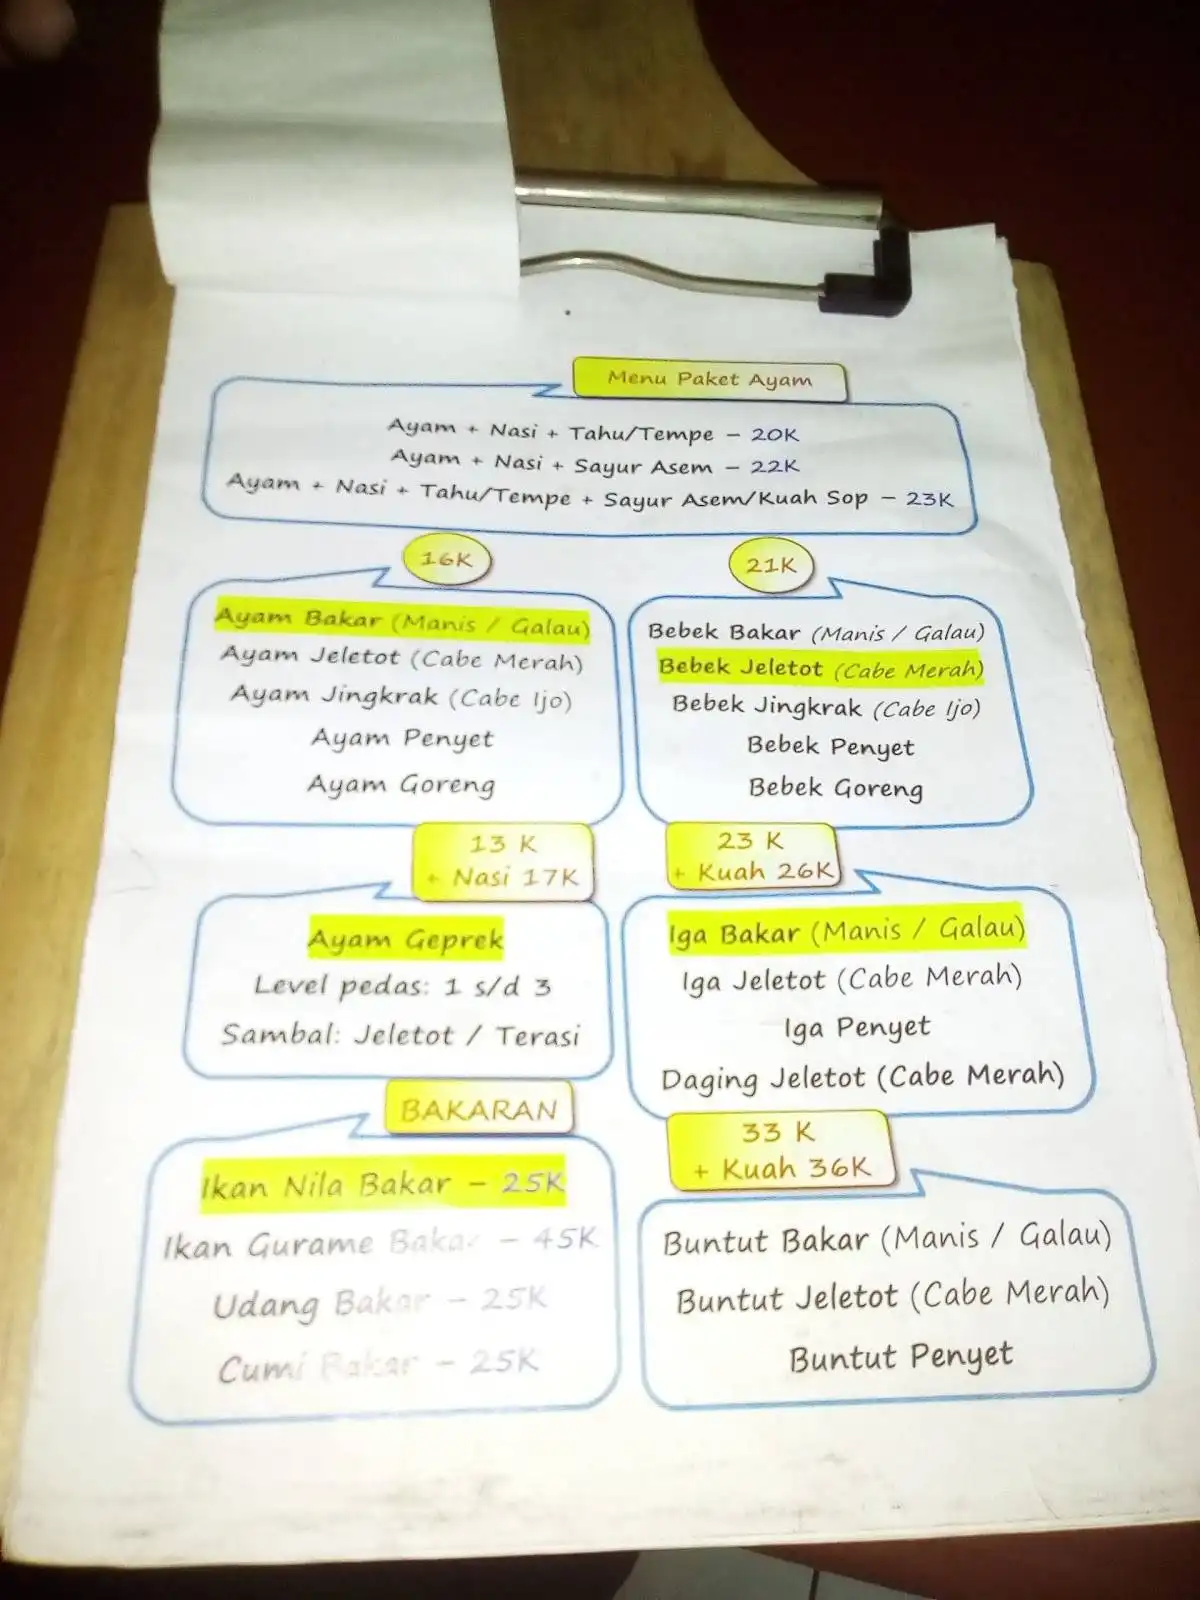 Menu Paket Ayam
Ayam + Nasi + Tahu/Tempe - 20K
Ayam + Nasi + Sayur Asem - 22K
Ayam + Nasi + Tahu/Tempe + Sayur Asem/Kuah Sop - 23K
16K
Ayam Bakar (Manis / Galau)
Ayam Jeletot (Cabe Merah)
Ayam Jingkrak (Cabe Ijo)
Ayam Penyet
Ayam Goreng
21K
Bebek Bakar (Manis / Galau)
Bebek Jeletot (Cabe Merah)
Bebek Jingkrak (Cabe Ijo)
Bebek Penyet
Bebek Goreng
13 K
+ Nasi 17K
Ayam Geprek
Level pedas: 1 s/d 3
Sambal: Jeletot / Terasi
23 K
+ Kuah 26K
Iga Bakar (Manis / Galau)
Iga Jeletot (Cabe Merah)
Iga Penyet
Daging Jeletot (Cabe Merah)
BAKARAN
Ikan Nila Bakar - 25K
Ikan Gurame Bakar - 45K
Udang Bakar - 25K
Cumi Bakar - 25K
33 K
+ Kuah 36K
Buntut Bakar (Manis / Galau)
Buntut Jeletot (Cabe Merah)
Buntut Penyet